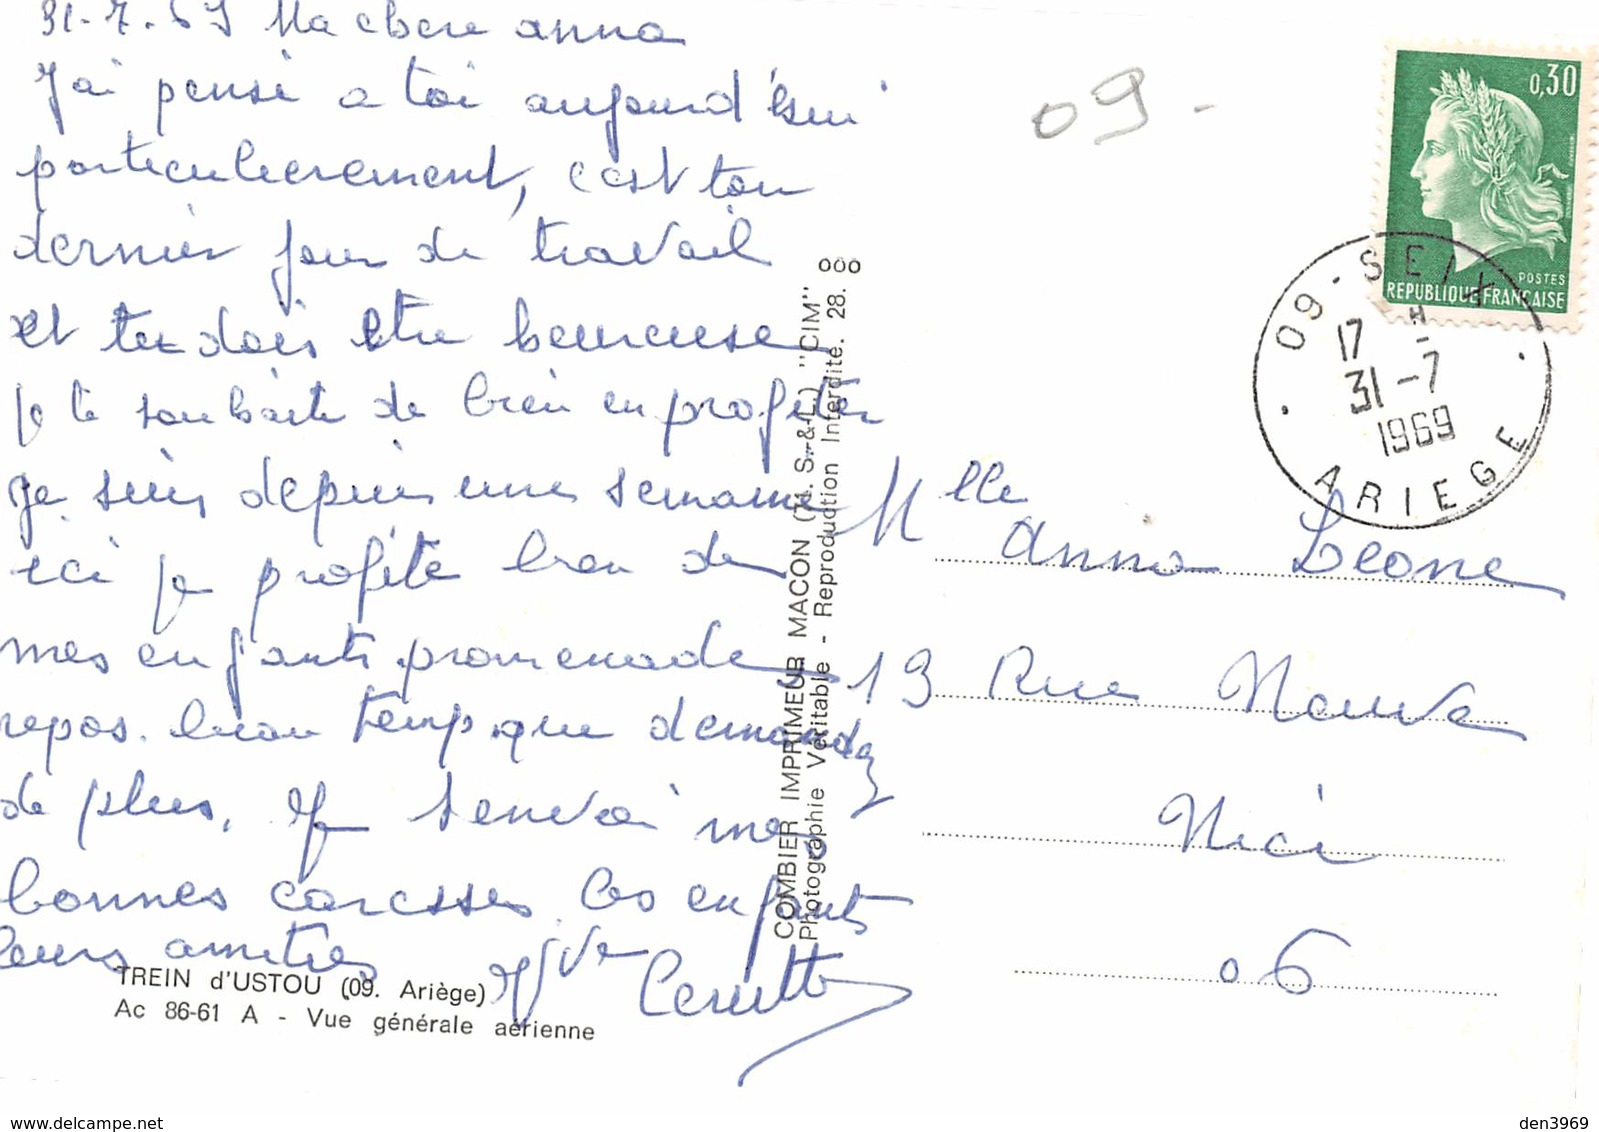 31-7.69 Ma chere anna
J'ai pensé a toi aujourd'hui
particulierement, c'est ton
dernier jour de travail
et tu dois etre heureuse
je te souhaite de bien en profiter
je suis depuis une semaine
ici je profite bien de
mes enfants promenade
repos. beau temps que demander
de plus, je t'envoi mes
bonnes caresses. les enfants
leurs amities
Yve Cerutti
TREIN d'USTOU (09. Ariège)
Ac 86-61 A - Vue générale aérienne
COMBIER IMPRIMEUR MACON (71. S.-&-L.) "CIM"
Photographie Véritable - Reproduction Interdite. 28.
09 -
0,30
POSTES
REPUBLIQUE FRANÇAISE
09 - SEIX
17 H
31 -7
1969
ARIEGE
Mlle Anna Leone
19 Rue Neuve
Nice
06
www.delcampe.net
den3969